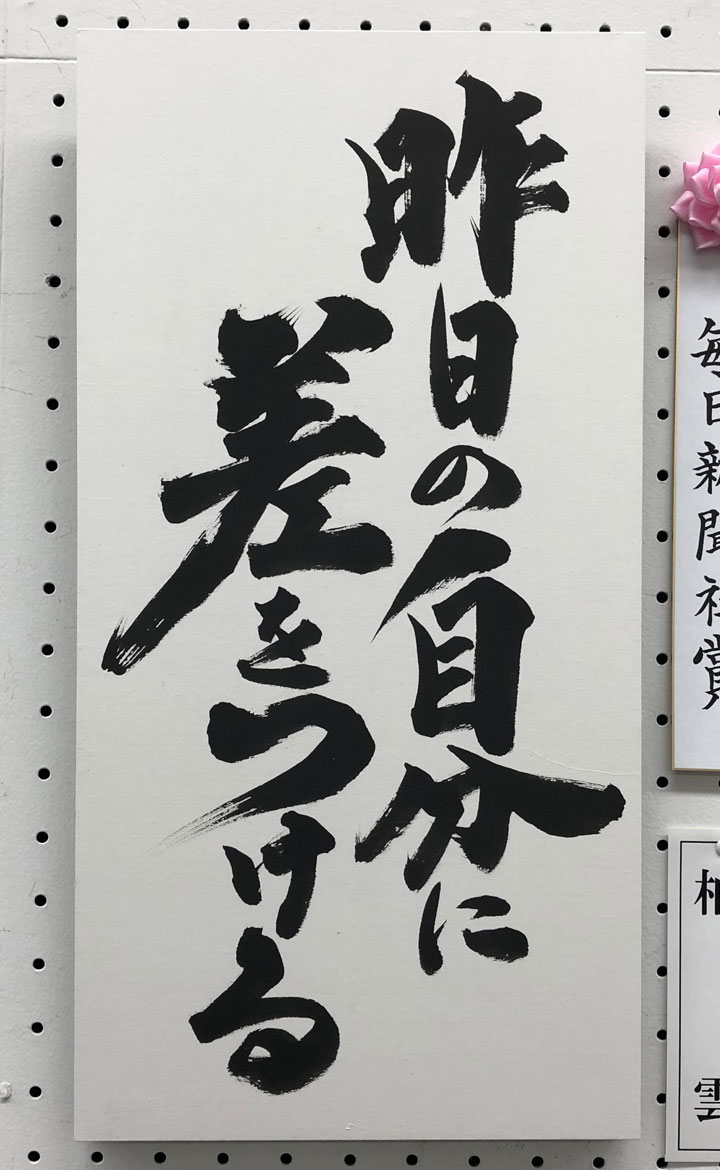 昨日の自分に
差をつける
毎日新聞社賞
雲